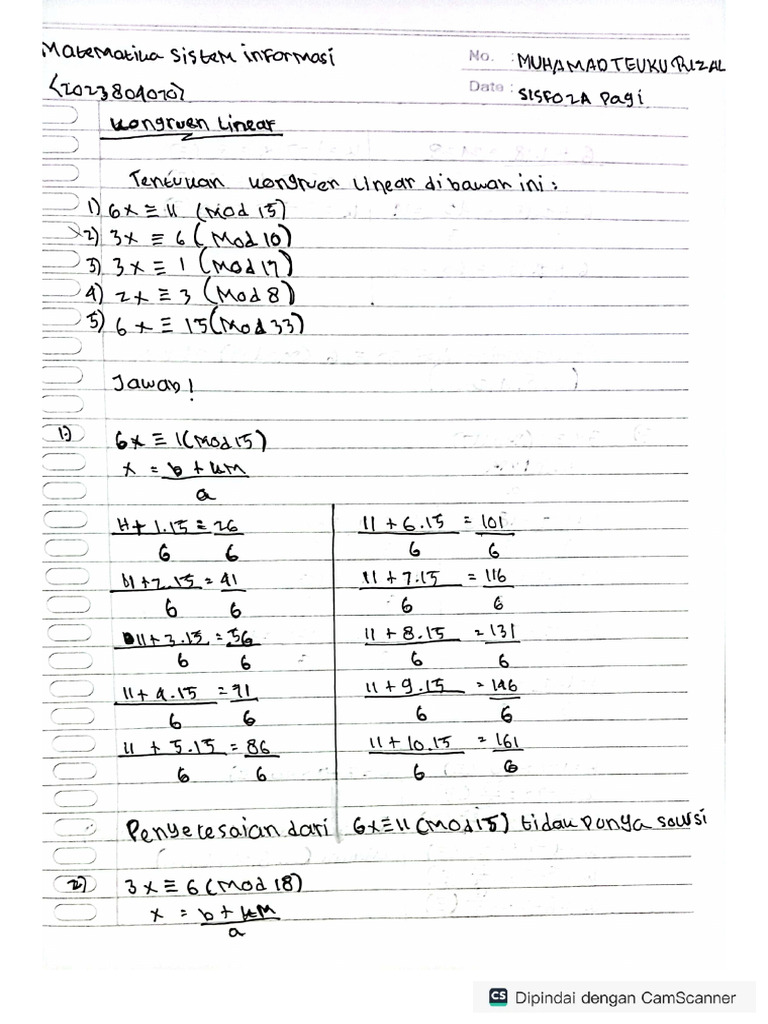 Matematika Sistem informasi
No. : MUHAMAD TEUKU RIZAL
Date : SISFO2A Pagi
Kongruen Linear
Tentukan kongruen Linear dibawah ini :
1) 6x ≡ 11 (Mod 15)
2) 3x ≡ 6 (Mod 10)
3) 3x ≡ 1 (Mod 17)
4) 2x ≡ 3 (Mod 8)
5) 6x ≡ 15 (Mod 33)
Jawab !
1) 6x ≡ 11 (Mod 15)
x = b + kM
a
11 + 1.15 = 26
6 6
11 + 2.15 = 41
6 6
11 + 3.15 = 56
6 6
11 + 4.15 = 71
6 6
11 + 5.15 = 86
6 6
11 + 6.15 = 101
6 6
11 + 7.15 = 116
6 6
11 + 8.15 = 131
6 6
11 + 9.15 = 146
6 6
11 + 10.15 = 161
6 6
Penyelesaian dari 6x ≡ 11 (Mod 15) tidak punya solusi
2) 3x ≡ 6 (Mod 18)
x = b + kM
a
CS Dipindai dengan CamScanner